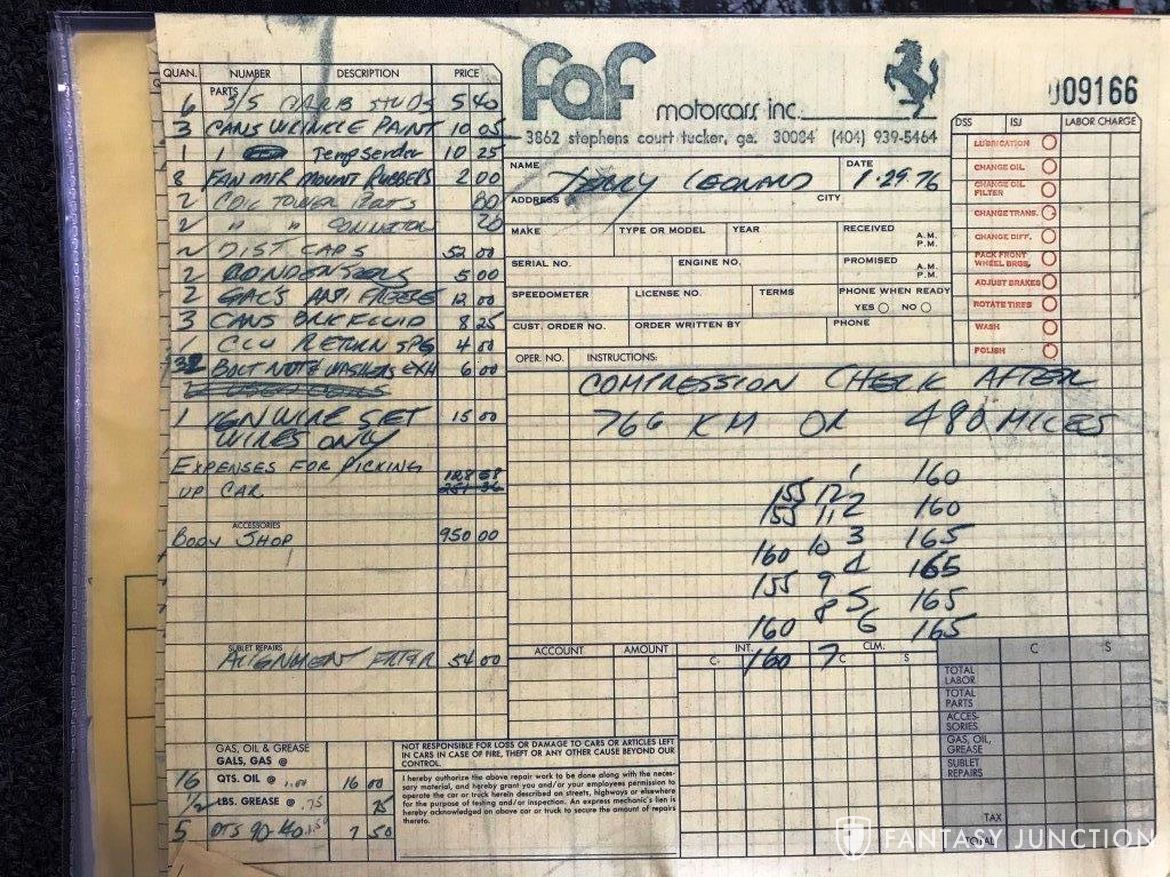 faf
motorcars inc.
3862 stephens court tucker, ga. 30084 (404) 939-5464
009166
QUAN. NUMBER DESCRIPTION PRICE
PARTS
6 5/5 CARB STUDS 5 40
3 CANS WRINKLE PAINT 10 05
1 1 Temp Sender 10 25
8 FAN MTR MOUNT RUBBERS 2 00
2 COIL TOWER BOOTS 80
2 " " 20
2 DIST CAPS 52 00
2 CONDENSERS 5 00
2 GAL'S ANTI FREEZE 12 00
3 CANS BRK FLUID 8 25
1 CLU RETURN SPG 4 00
32 BOLT NUT & WASHERS EXH 6 00
1 IGN WIRE SET 15 00
WIRES ONLY
EXPENSES FOR PICKING
UP CAR
ACCESSORIES
BODY SHOP 950 00
SUBLET REPAIRS
ALIGNMENT 54 00
GAS, OIL & GREASE
GALS, GAS @
16 QTS. OIL @ 1.00 16 00
1/2 LBS. GREASE @ .75 75
5 QTS 90-140 1.50 7 50
NAME TERRY LEONARD
DATE 1.29.76
ADDRESS CITY
MAKE TYPE OR MODEL YEAR RECEIVED A.M. P.M.
SERIAL NO. ENGINE NO. PROMISED A.M. P.M.
SPEEDOMETER LICENSE NO. TERMS PHONE WHEN READY
YES NO
CUST. ORDER NO. ORDER WRITTEN BY PHONE
DSS ISJ LABOR CHARGE
LUBRICATION
CHANGE OIL
CHANGE OIL FILTER
CHANGE TRANS.
CHANGE DIFF.
PACK FRONT WHEEL BRGS.
ADJUST BRAKES
ROTATE TIRES
WASH
POLISH
OPER. NO. INSTRUCTIONS:
COMPRESSION CHECK AFTER
766 KM OR 480 MILES
1 160
155 12 2 160
155 11 3 165
160 10 4 165
155 9 5 165
160 8 6 165
160 7
ACCOUNT AMOUNT INT. CLM. C S
C C S
TOTAL LABOR
TOTAL PARTS
ACCES-SORIES
GAS, OIL, GREASE
SUBLET REPAIRS
TAX
TOTAL
NOT RESPONSIBLE FOR LOSS OR DAMAGE TO CARS OR ARTICLES LEFT
IN CARS IN CASE OF FIRE, THEFT OR ANY OTHER CAUSE BEYOND OUR
CONTROL.
I hereby authorize the above repair work to be done along with the neces-
sary material, and hereby grant you and/or your employees permission to
operate the car or truck herein described on streets, highways or elsewhere
for the purpose of testing and/or inspection. An express mechanic's lien is
hereby acknowledged on above car or truck to secure the amount of repairs
thereto.
FANTASY JUNCTION